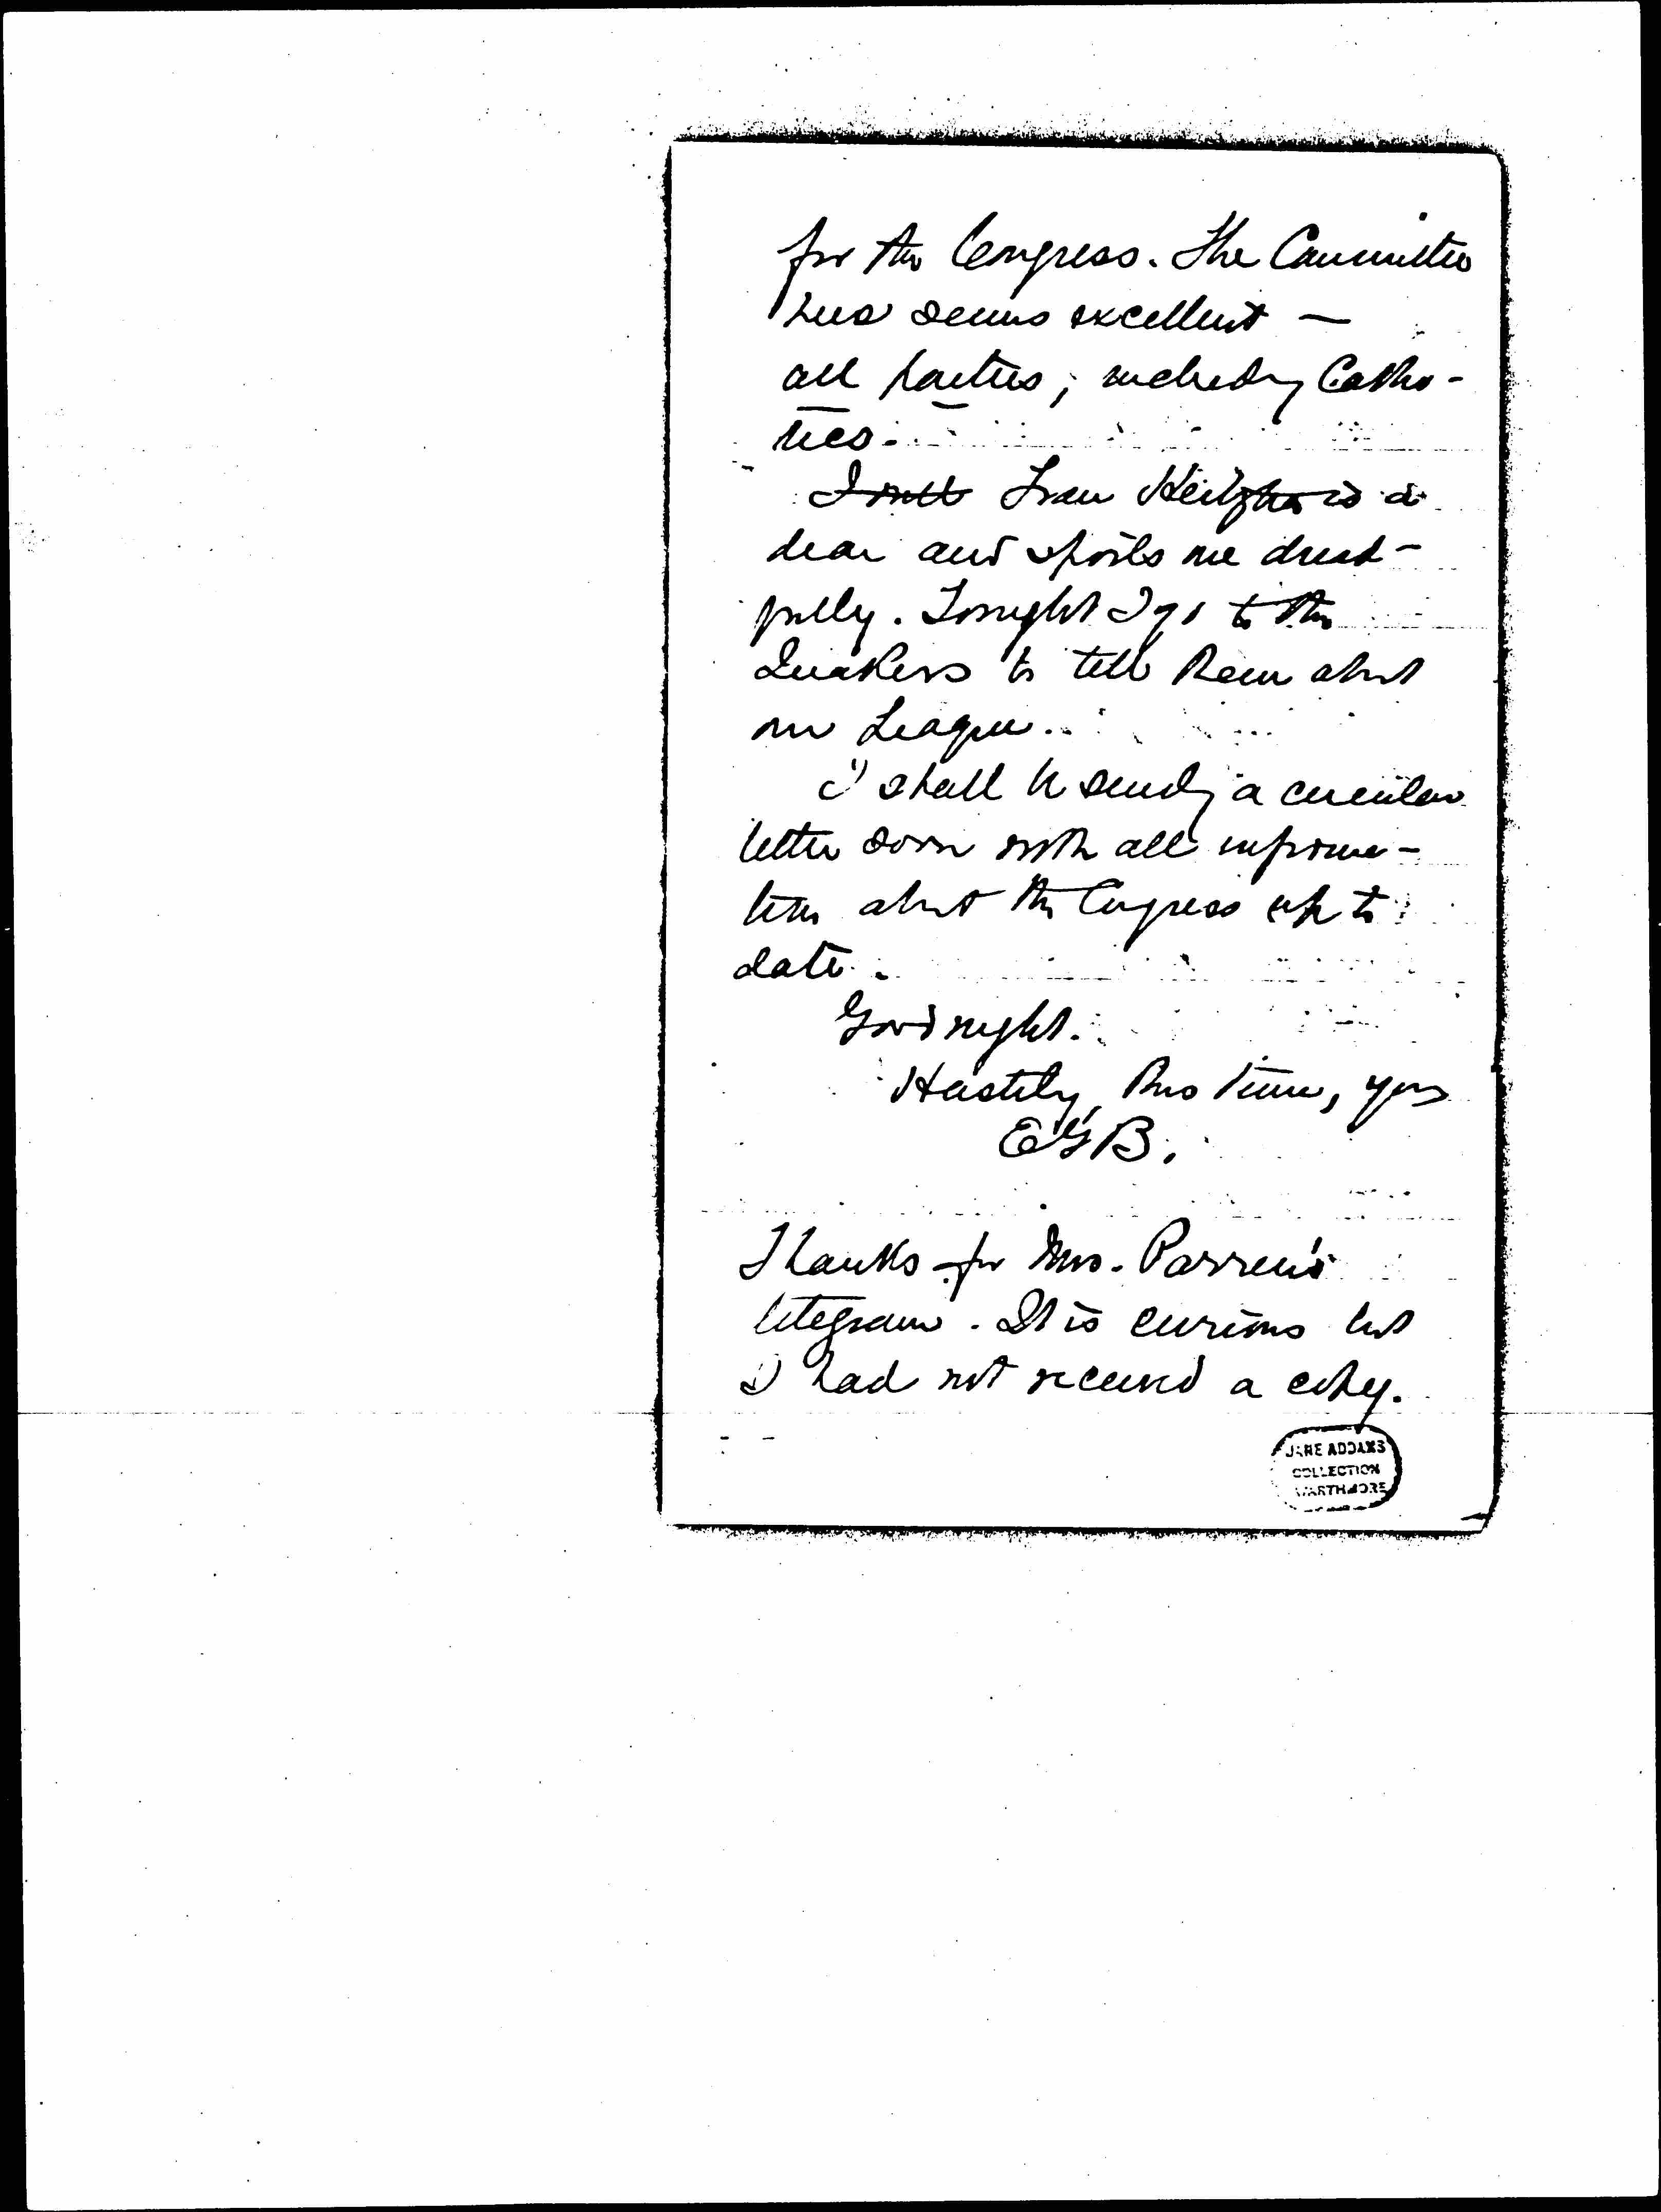 for the Congress. The Committee
here seems excellent —
all parties, including Catho-
lics.
Frau is a
dear and spoils me dread-
fully. Tonight I go to the
Quakers to tell them about
our League.
I shall be sending a circular
letter soon with all informa-
tion about the Congress up to
date.
Good night.
Hastily, this time, yrs
EGB.
Thanks for Mrs. Parren's
telegram. It is curious but
I had not received a copy.
JANE ADDAMS
COLLECTION
WARTHMORE